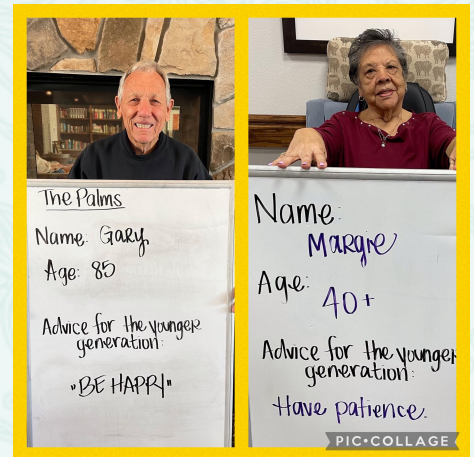 The Palms
Name: Gary
Age: 85
Advice for the younger
generation:
"BE HAPPY"
Name:
Margie
Age:
40+
Advice for the younger
generation:
Have patience.
PIC•COLLAGE